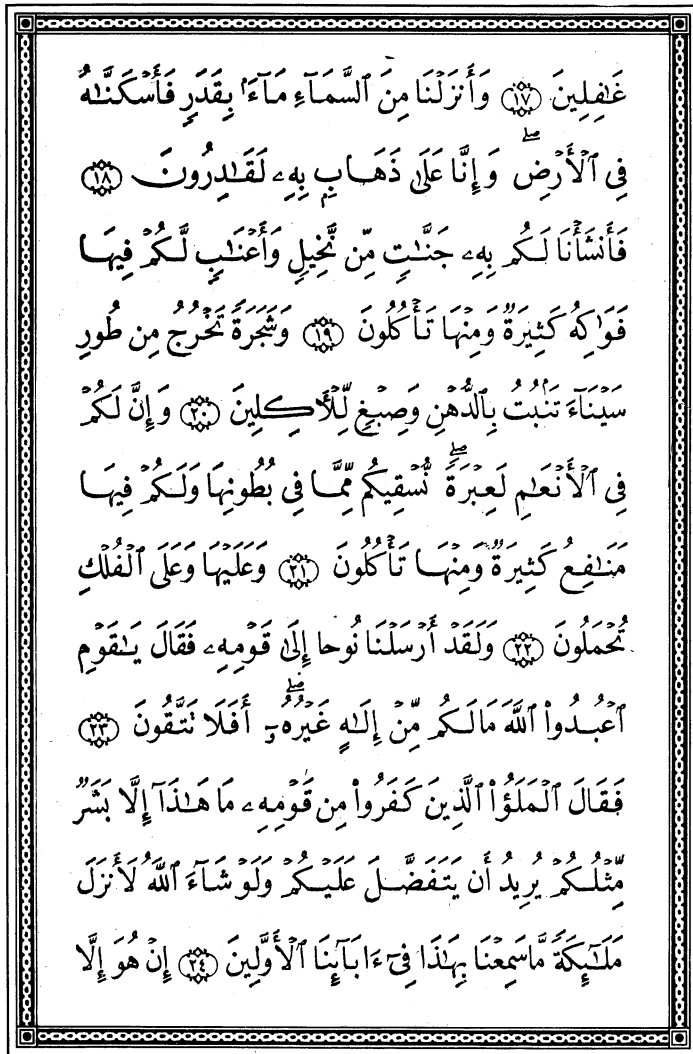 غَٰفِلِينَ ١٧ وَأَنزَلْنَا مِنَ ٱلسَّمَآءِ مَآءًۢ بِقَدَرٍ فَأَسْكَنَّٰهُ
فِى ٱلْأَرْضِ ۖ وَإِنَّا عَلَىٰ ذَهَابٍۭ بِهِۦ لَقَٰدِرُونَ ١٨
فَأَنشَأْنَا لَكُم بِهِۦ جَنَّٰتٍ مِّن نَّخِيلٍ وَأَعْنَٰبٍ لَّكُمْ فِيهَا
فَوَٰكِهُ كَثِيرَةٌ وَمِنْهَا تَأْكُلُونَ ١٩ وَشَجَرَةً تَخْرُجُ مِن طُورِ
سَيْنَآءَ تَنۢبُتُ بِٱلدُّهْنِ وَصِبْغٍ لِّلْءَاكِلِينَ ٢٠ وَإِنَّ لَكُمْ
فِى ٱلْأَنْعَٰمِ لَعِبْرَةً ۖ نُّسْقِيكُم مِّمَّا فِى بُطُونِهَا وَلَكُمْ فِيهَا
مَنَٰفِعُ كَثِيرَةٌ وَمِنْهَا تَأْكُلُونَ ٢١ وَعَلَيْهَا وَعَلَى ٱلْفُلْكِ
تُحْمَلُونَ ٢٢ وَلَقَدْ أَرْسَلْنَا نُوحًا إِلَىٰ قَوْمِهِۦ فَقَالَ يَٰقَوْمِ
ٱعْبُدُوا۟ ٱللَّهَ مَا لَكُم مِّنْ إِلَٰهٍ غَيْرُهُۥٓ ۖ أَفَلَا تَتَّقُونَ ٢٣
فَقَالَ ٱلْمَلَؤُا۟ ٱلَّذِينَ كَفَرُوا۟ مِن قَوْمِهِۦ مَا هَٰذَآ إِلَّا بَشَرٌ
مِّثْلُكُمْ يُرِيدُ أَن يَتَفَضَّلَ عَلَيْكُمْ وَلَوْ شَآءَ ٱللَّهُ لَأَنزَلَ
مَلَٰٓئِكَةً مَّا سَمِعْنَا بِهَٰذَا فِىٓ ءَابَآئِنَا ٱلْأَوَّلِينَ ٢٤ إِنْ هُوَ إِلَّا